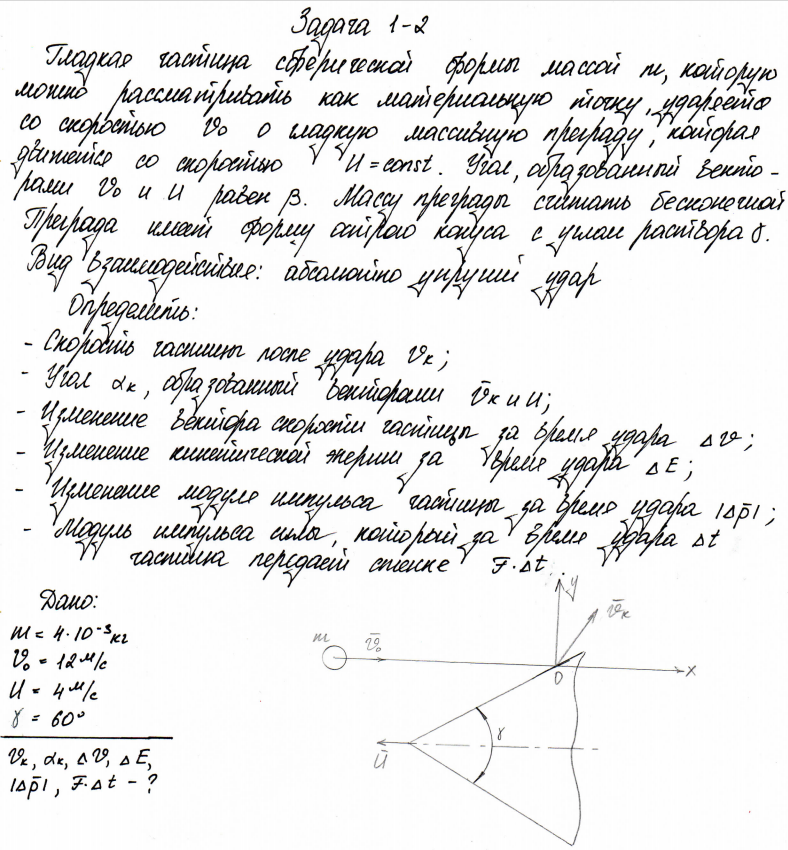 Задача 1-2
Гладкая частица сферической формы массой m, которую
можно рассматривать как материальную точку, ударяется
со скоростью v₀ о гладкую массивную преграду, которая
движется со скоростью U = const. Угол, образованный векто-
рами v₀ и U равен β. Массу преграды считать бесконечной
Преграда имеет форму острого конуса с углом раствора γ.
Вид взаимодействия: абсолютно упругий удар
Определить:
- Скорость частицы после удара vк;
- Угол αк, образованный векторами v̄к и U;
- Изменение вектора скорости частицы за время удара Δv;
- Изменение кинетической энергии за время удара ΔE;
- Изменение модуля импульса частицы за время удара |Δp̄|;
- Модуль импульса силы, который за время удара Δt
частица передаёт стенке F·Δt
Дано:
m = 4·10⁻³ кг
v₀ = 12 м/с
U = 4 м/с
γ = 60°
vк, αк, Δv, ΔE,
|Δp̄|, F·Δt - ?
y
v̄к
m
v̄₀
O
x
γ
Ū